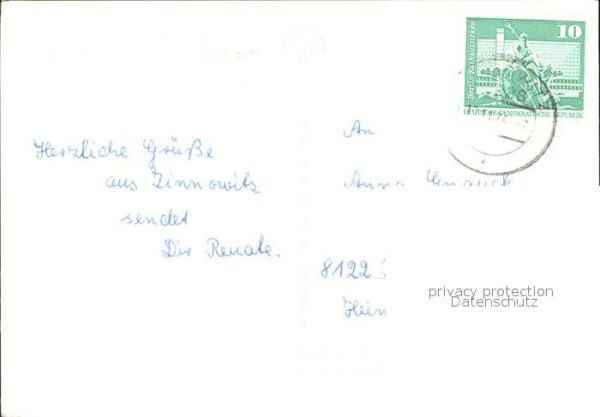 10
Berlin, Rathausstraße
DEUTSCHE DEMOKRATISCHE REPUBLIK
An
Herzliche Grüße
aus Zinnowitz
sendet
Dir Renate.
Anna
8122
privacy protection
Datenschutz
Hein